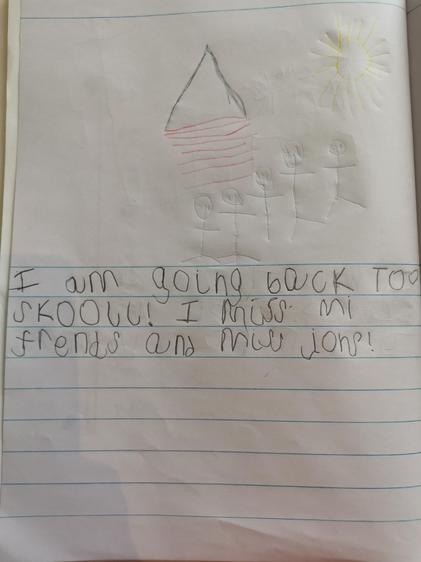 I am going back Too
SKOOLL! I miss mi
frends and miss jons!